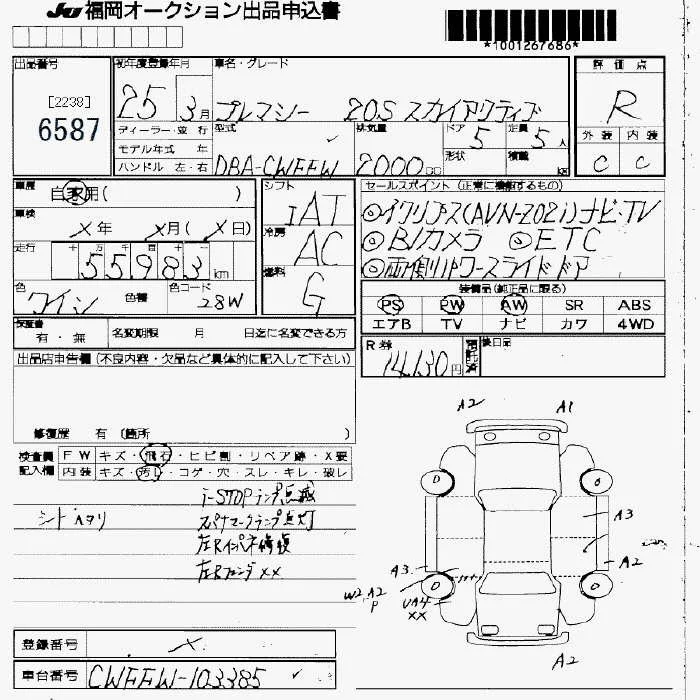 JU 福岡オークション出品申込書
*1001267686*
出品番号 初年度登録年月 車名・グレード 評価点
[2238]
6587
25 3月 プレマシー 20S スカイアクティブ R
ディーラー・並行 型式 排気量 ドア 定員 外装 内装
モデル年式 年 5 5人
ハンドル 左・右 DBA-CWFFW 2000cc 形状 積載 kg C C
車歴 自家用( ) シフト IAT セールスポイント (正常に機能するもの)
車検 X年 X月(X日) 冷房 AC ◎イクリプス(AVN-Z02i)ナビ・TV
走行 十 万 千 百 十 一 ◎Bカメラ ◎ETC
55983km 燃料 G ◎両側パワースライドドア
色 ワイン 色替 色コード 28W 装備品(純正品に限る)
PS PW AW SR ABS
保証書 有・無 名変期限 月 日迄に名変できる方 エアB TV ナビ カワ 4WD
R券 14,130円 預託済 後日品
出品店申告欄(不良内容・欠品など具体的に記入して下さい)
修復歴 有 (箇所 )
検査員 FW キズ・飛石・ヒビ割・リペア跡・X要
記入欄 内装 キズ・汚レ・コゲ・穴・スレ・キレ・破レ
i-STOPランプ点滅
シートヘタリ スパナマークランプ点灯
左Rインパネ修復
左Rフェンダ XX
A2 A1
A3
A2
A3
W2.A2
P
UA4
XX
A2
登録番号 X
車台番号 CWFFW-103385